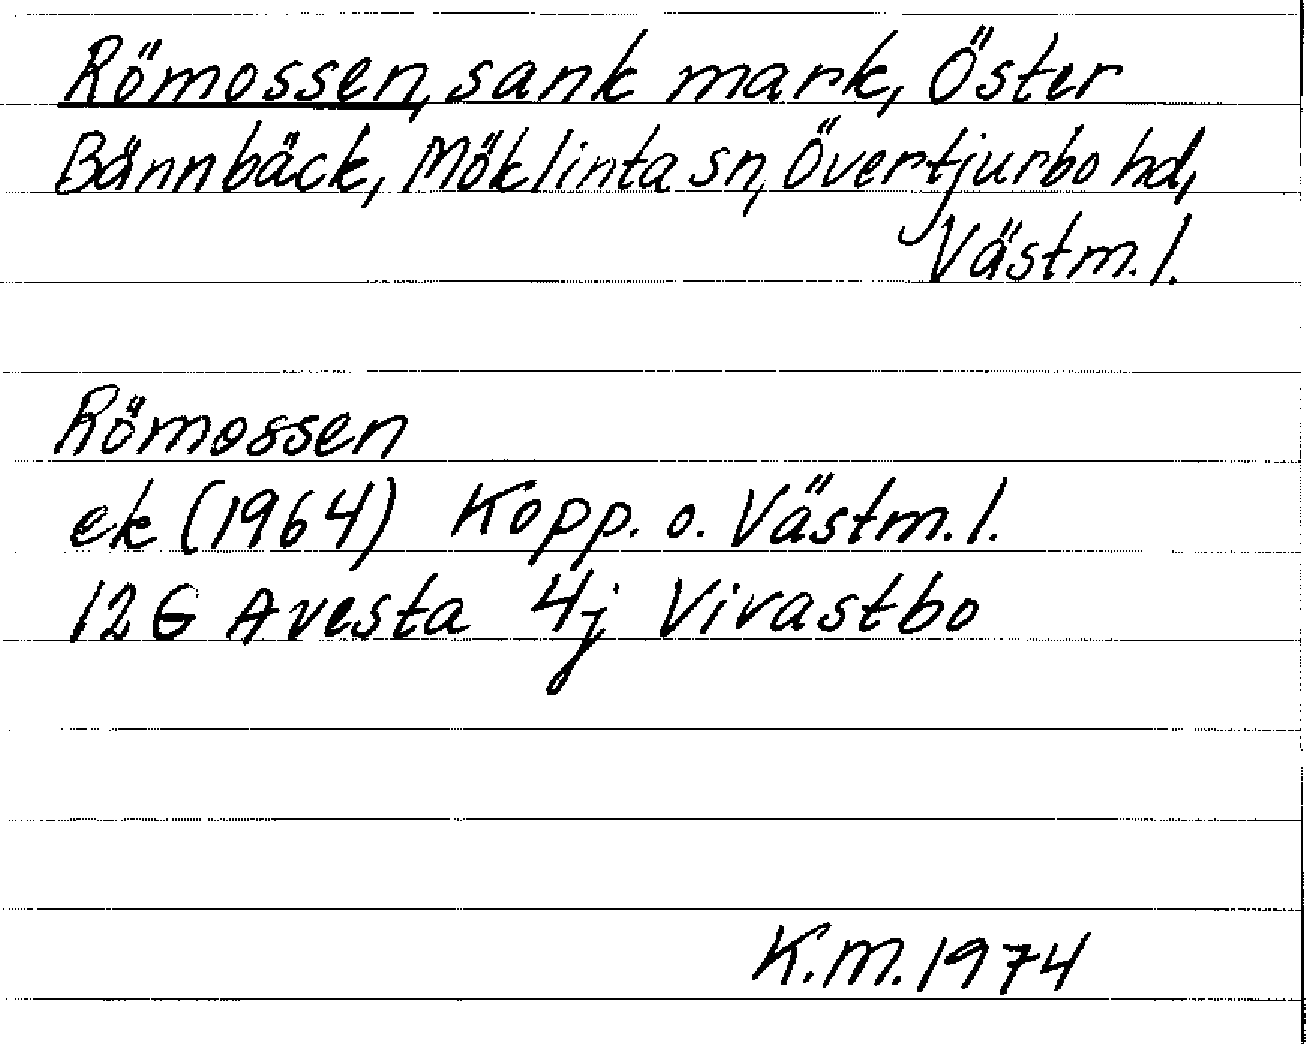 Römossen, sank mark, Öster
Bännbäck, Möklinta sn, Övertjurbo hd,
Västm. l.
Römossen
ek (1964) Kopp. o. Västm. l.
12G Avesta 4j Virastbo
K.M. 1974